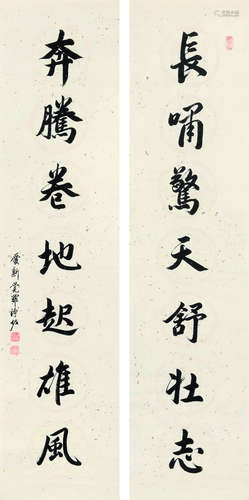 長嘯驚天舒壯志
奔騰卷地起雄風
愛新覺羅